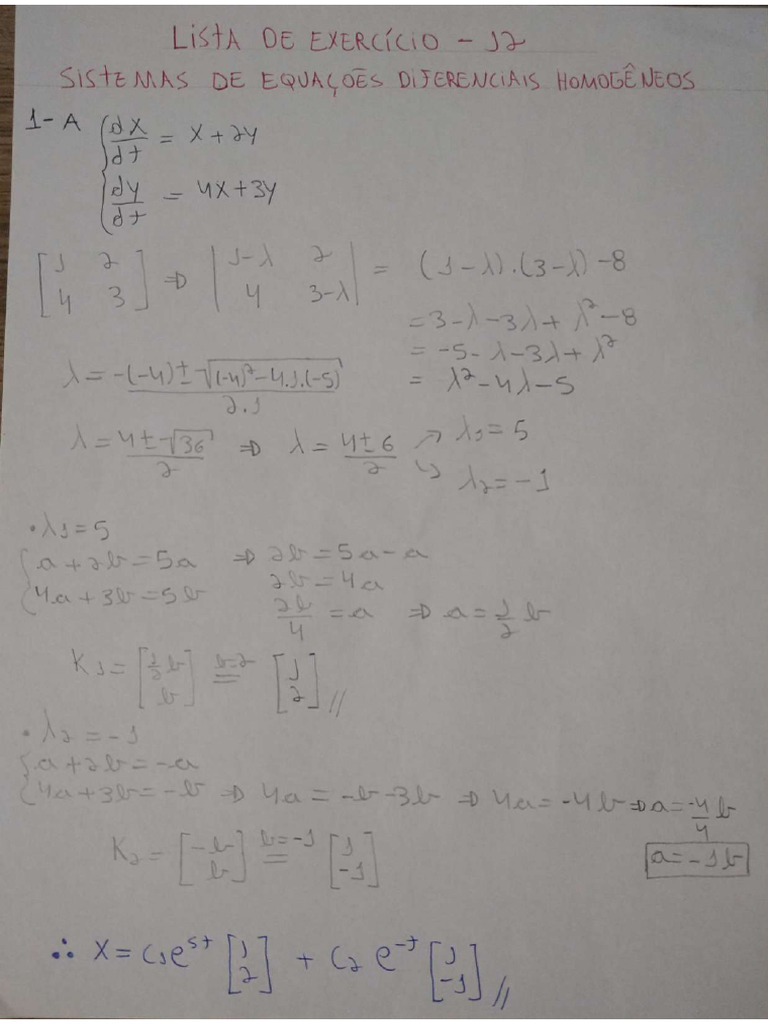 LISTA DE EXERCÍCIO - 12
SISTEMAS DE EQUAÇÕES DIFERENCIAIS HOMOGÊNEOS
1- A { dx/dt = x + 2y
{ dy/dt = 4x + 3y
[1 2; 4 3] ⇒ |1-λ 2; 4 3-λ| = (1-λ).(3-λ) - 8
= 3 - λ - 3λ + λ² - 8
= -5 - λ - 3λ + λ²
= λ² - 4λ - 5
λ = -(-4) ± √((-4)² - 4.1.(-5)) / 2.1
λ = 4 ± √36 / 2 ⇒ λ = 4 ± 6 / 2 ↗ λ1 = 5
↘ λ2 = -1
• λ1 = 5
{ a + 2b = 5a ⇒ 2b = 5a - a
{ 4a + 3b = 5b 2b = 4a
2b/4 = a ⇒ a = 1/2 b
K1 = [1/2 b; b] b=2 = [1; 2] //
• λ2 = -1
{ a + 2b = -a
{ 4a + 3b = -b ⇒ 4a = -b - 3b ⇒ 4a = -4b ⇒ a = -4/4 b
K2 = [-b; b] b=-1 = [1; -1]
a = -1b
∴ X = C1e^5t [1; 2] + C2 e^-t [1; -1] //